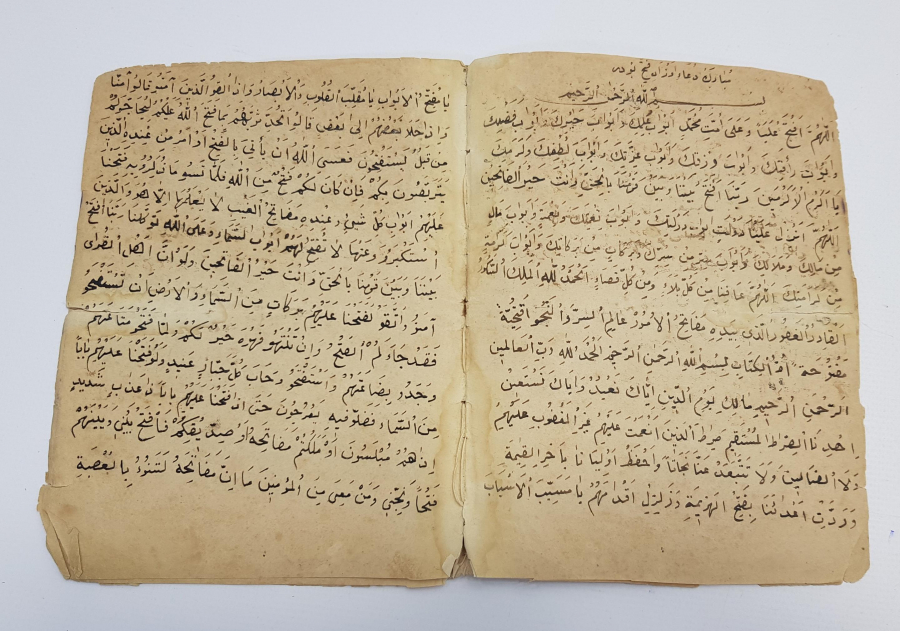 مبارك دعاء اوراد فتح
بسم الله الرحمن الرحيم
اللهم افتح علينا وعلى امت محمد ابواب ابواب خيرك وابواب فضلك
وابواب وابواب رزقك وابواب عزتك وابواب لطفك وكرمك
يا اكرم الاكرمين ربنا افتح بيننا وبين قومنا بالحق وانت خير الفاتحين
اللهم انزل علينا وابواب نعمتك وابواب
من وابواب من سرك وبركات من بركاتك وابواب
من كرامتك اللهم عافنا من كل بلاء ومن كل قضاء الحمد لله الملك
القادر الغفور الذي بيده مفاتح الامور عالم السر والنجوا
مفتوحة الكتاب بسم الله الرحمن الرحيم الحمد لله رب العالمين
الرحمن الرحيم مالك يوم الدين اياك نعبد واياك نستعين
اهدنا الصراط المستقيم صراط الذين انعمت عليهم غير المغضوب عليهم
ولا الضالين ولا عنا واحفظ اوليانا
وردت اعدائنا بفتح الهزيمة وزلزل اقدامهم يا مسبب الاسباب
يا مفتح الابواب يا مقلب القلوب والابصار واذا لقو الذين آمنو قالو آمنا
واذا خلا بعضهم الى بعض قالو اتحدثونهم بما فتح الله عليكم ليحاجوكم
من قبل يستفتحون فعسى الله ان يأتي بالفتح او امر من عنده الذين
يتربصون بكم فان كان لكم فتح من الله فلما نسو ما ذكرو به فتحنا
عليهم ابواب كل شيء وعنده مفاتح الغيب لا يعلمها الا هو والذين
استكبرو عنها لا تفتح لهم ابواب السماء وعلى الله توكلنا ربنا افتح
بيننا وبين قومنا بالحق وانت خير الفاتحين ولو ان اهل القرى
آمنو واتقو لفتحنا عليهم بركات من السماء والارض ان تستفتحو
فقد جاءكم الفتح وان تنتهو فهو خير لكم ولما فتحو متاعهم
وجدو بضاعتهم واستفتحو وخاب كل جبار عنيد ولو فتحنا عليهم بابا
من السماء فظلو فيه يعرجون حتى اذا فتحنا عليهم بابا ذا عذاب شديد
اذا هم مبلسون او ما ملكتم مفاتحه او صديقكم فافتح بيني وبينهم
فتحا ونجني ومن معي من المؤمنين ما ان مفاتحه لتنوء بالعصبة